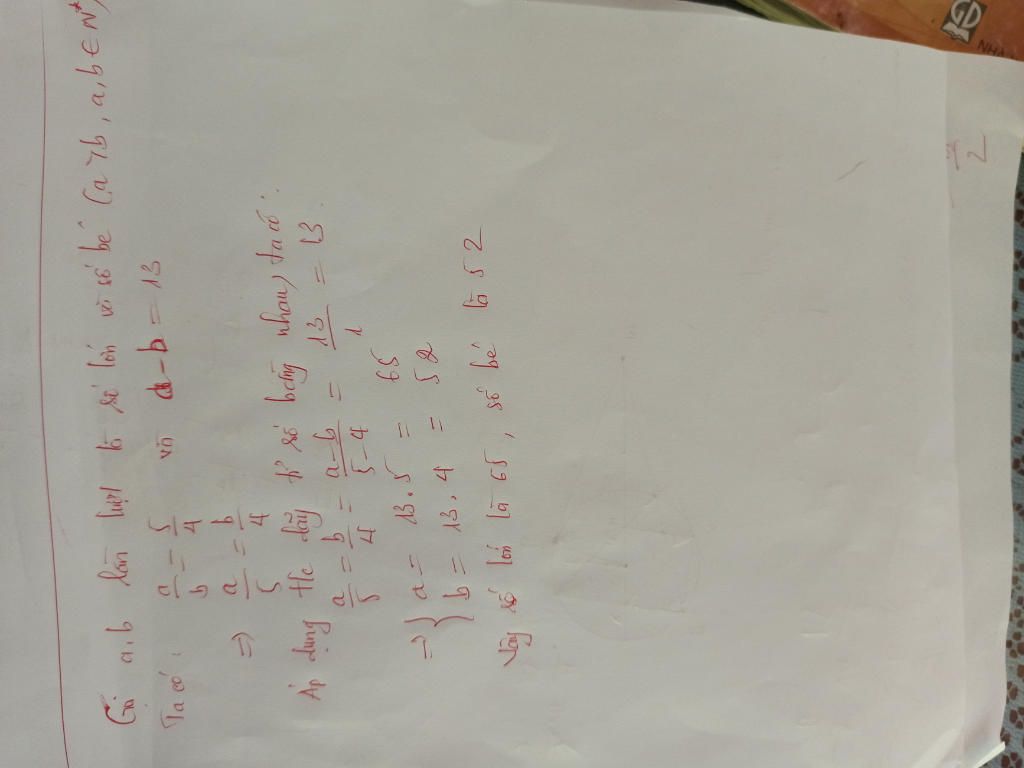 Gọi a,b lần lượt là số lớn và số bé (a > b, a,b ∈ N*)
Ta có: a/b = 5/4 và a-b = 13
⇒ a/5 = b/4
Áp dụng t/c dãy tỉ số bằng nhau, ta có:
a/5 = b/4 = a-b/5-4 = 13/1 = 13
⇒ { a = 13.5 = 65
b = 13.4 = 52
Vậy số lớn là 65, số bé là 52
2
GD
NHÀ